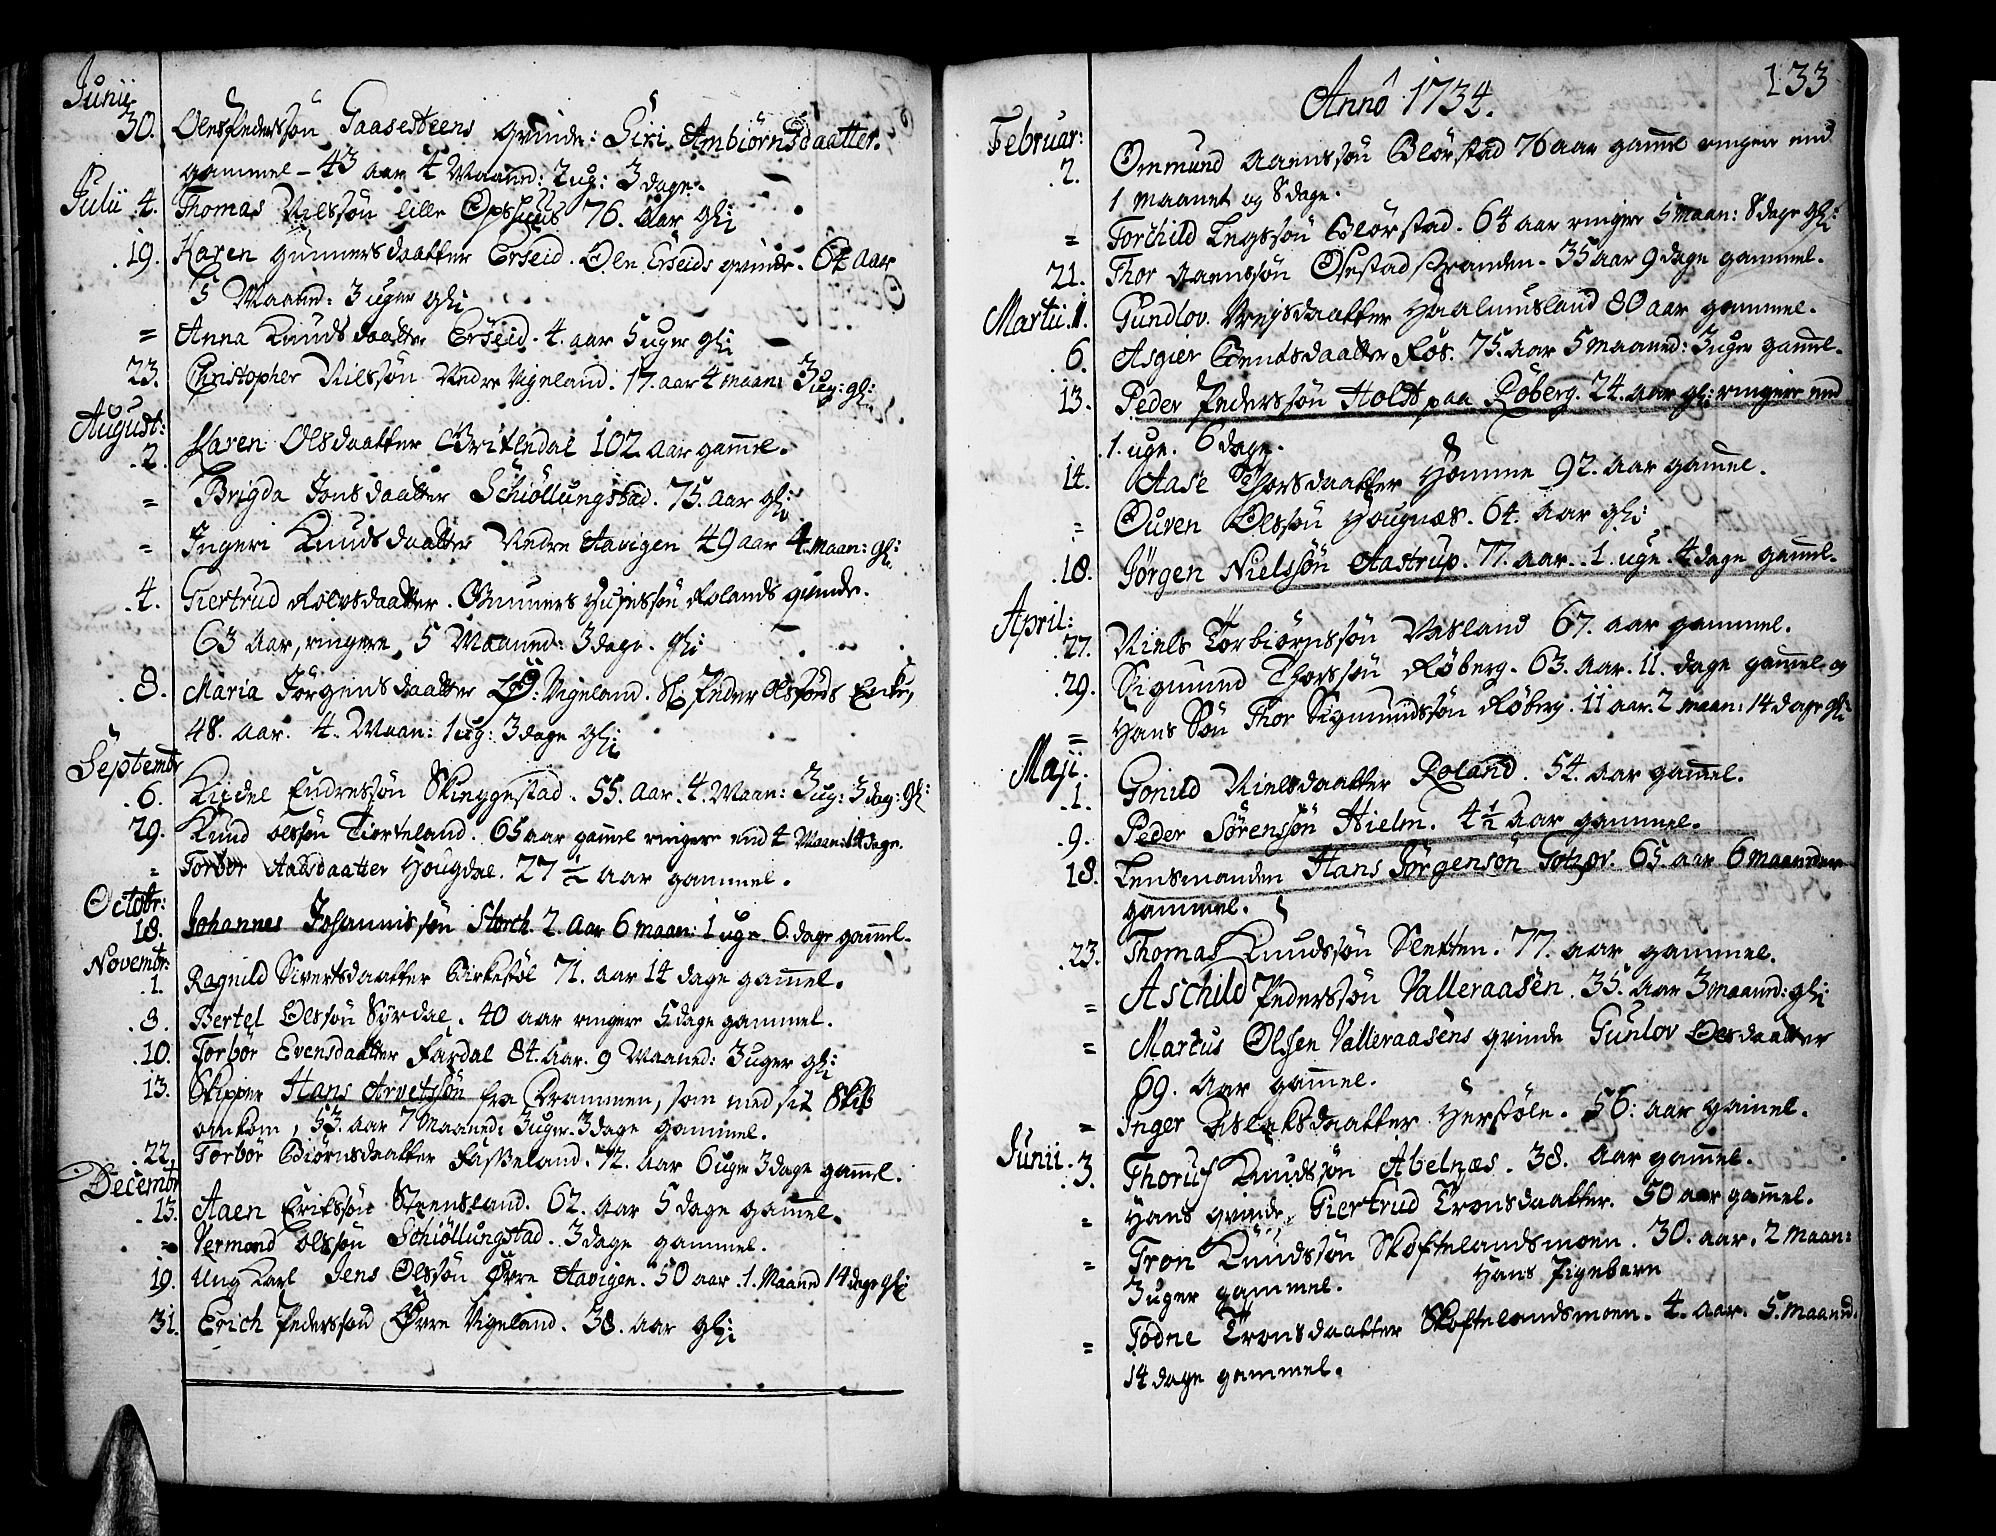 Junii
30. Ole Pederssøn Gaasesteens qvinde: Siri Ambiørnsdaatter.
gammel - 43 aar 4 Maaned: 2 ug: 3 dage.
Julii 4. Thomas Nilssøn lille 76. aar gl:
19. Karen Gunnersdaatter Erseid. Ole Erseids qvinde. 64 aar
5 Maaned: 3 uger gl:
= Anna Knudsdaatter Erseid. 4. aar 5 uger gl:
23. Christopher Nilssøn Nedre Vigeland. 17. aar 4 maan: 3 ug: gl:
August:
2. Karen Olsdaatter Britsdal 102 aar gam̅el.
= Brigda Jonsdaatter Schiøllungstad. 75. aar gl:
= Ingeri Knudsdaatter Nedre Aavigen 49 aar 4 maan: gl:
4. Giertrud Rolvsdaatter. Gunners Rolands qvinde.
63 aar, ringere, 5 Maaned: 3 dage. gl:
8. Maria Jørgensdaatter Vigeland. Sl. Peder Olssøns Encke,
48. aar. 4. Maan: 1 ug: 3 dage gl:
Septembr
6. Kiedel Endressøn Skinggestad. 55. aar. 4. Maan: 3 ug: 3 dag: gl:
29. Knud Olssøn Tiorteland. 65 aar gam̅el ringere end 4 Maan: 14 dage.
= Torbor Aadsdaatter Hougdal. 27 ½ aar gammel.
Octobr:
18. Johannes Johannissøn Storch. 2. aar 6 maan: 1 uge. 6. dage gam̅el.
Novembr:
1. Ragnild Sivertsdaatter Birkestøl 71. aar 14 dage gam̅el.
3. Bertel Olssøn Syrdal. 40 aar ringere 5 dage gammel.
10. Torbor Evensdaatter Fardal 84. aar. 9 Maaned: 3 uger gl:
13. Skipper Hans Arvetssøn fra Drammen, som med sit Skib
omkom, 53. aar 7 Maaned: 3 uger. 3 dage gammel.
22. Torbor Biørnsdaatter Fasseland. 72. aar 6 uger 3 dage gam̅el.
Decembr
13. Aaen Erikssøn Steensland. 62. aar 5 dage gam̅el.
= Vermond Olssøn Schiøllungstad. 3 dage gammel.
19. Ung Karl Jens Olssøn Øvre Aavigen. 50 aar. 1. Maaned 14 dage gl:
31. Erich Pederssøn Øvre Vigeland. 38. aar gl:
133
Annô 1734.
Februar:
2. Ommund Aanenssøn Blørstad 76 aar gam̅el ringere end
1 maanet og 8 dage.
= Torkild Blørstad. 64 aar ringere 5 maan: 8 dage gl:
21. Thor Aanenssøn Ofestad stranden. 35 aar 9 dage gammel.
Martii. 1. Gundlov Haalmusland 80 aar gammel.
6. Asgier Bendsdaatter Fos. 75. aar 5 maaned: 3 uger gam̅el.
13. Peder Pederssøn Holst paa Røberg. 24. aar gl: ringere end
1. uge. 6 dage.
14. Aase Thorsdaatter Homme 92. aar gam̅el.
= Ouven Olssøn Hougnæs. 64. aar gl:
18. Jørgen Nielssøn Aastrup. 77. aar. 1. uge. 4 dage gam̅el.
April:
27. Niels Torbiørnssøn Vasland 67. aar gammel.
29. Sigmund Thorssøn Røberg. 63. aar. 11. dage gam̅el og
= Hans Søn Thor Sigmundssøn Røberg. 11 aar. 2 maan: 14 dage gl:
Maji.
1. Gonild Nielsdaatter Roland. 54. aar gam̅el.
9. Peder Sørenssøn Hielm. 4 ½ aar gammel.
18. Lensmanden Hans Jørgensøn Gotzov. 65 aar 6 maaneder
gammel.
23. Thomas Knudssøn Sletten. 77. aar gammel.
= Aschild Pederssøn Valleraasen. 35. aar 3 maaned: gl:
= Marcus Olssen Valleraasens qvinde Gunlov Olsdaatter
69. aar gam̅el.
= Inger Aslaksdaatter Herstøle. 56. aar gam̅el.
Junii. 3. Thoruf Knudssøn Abelnæs. 38. aar gam̅el.
= Hans qvinde Giertrud Tronsdaatter. 50 aar gam̅el.
= Tron Knudssøn Skoftelandsmoen. 30. aar. 2 maan:
3 uger gammel. Hans Pigebarn
= Todne Tronsdaatter Skoftelandsmoen. 4. aar. 5. maaned.
14 dage gammel.